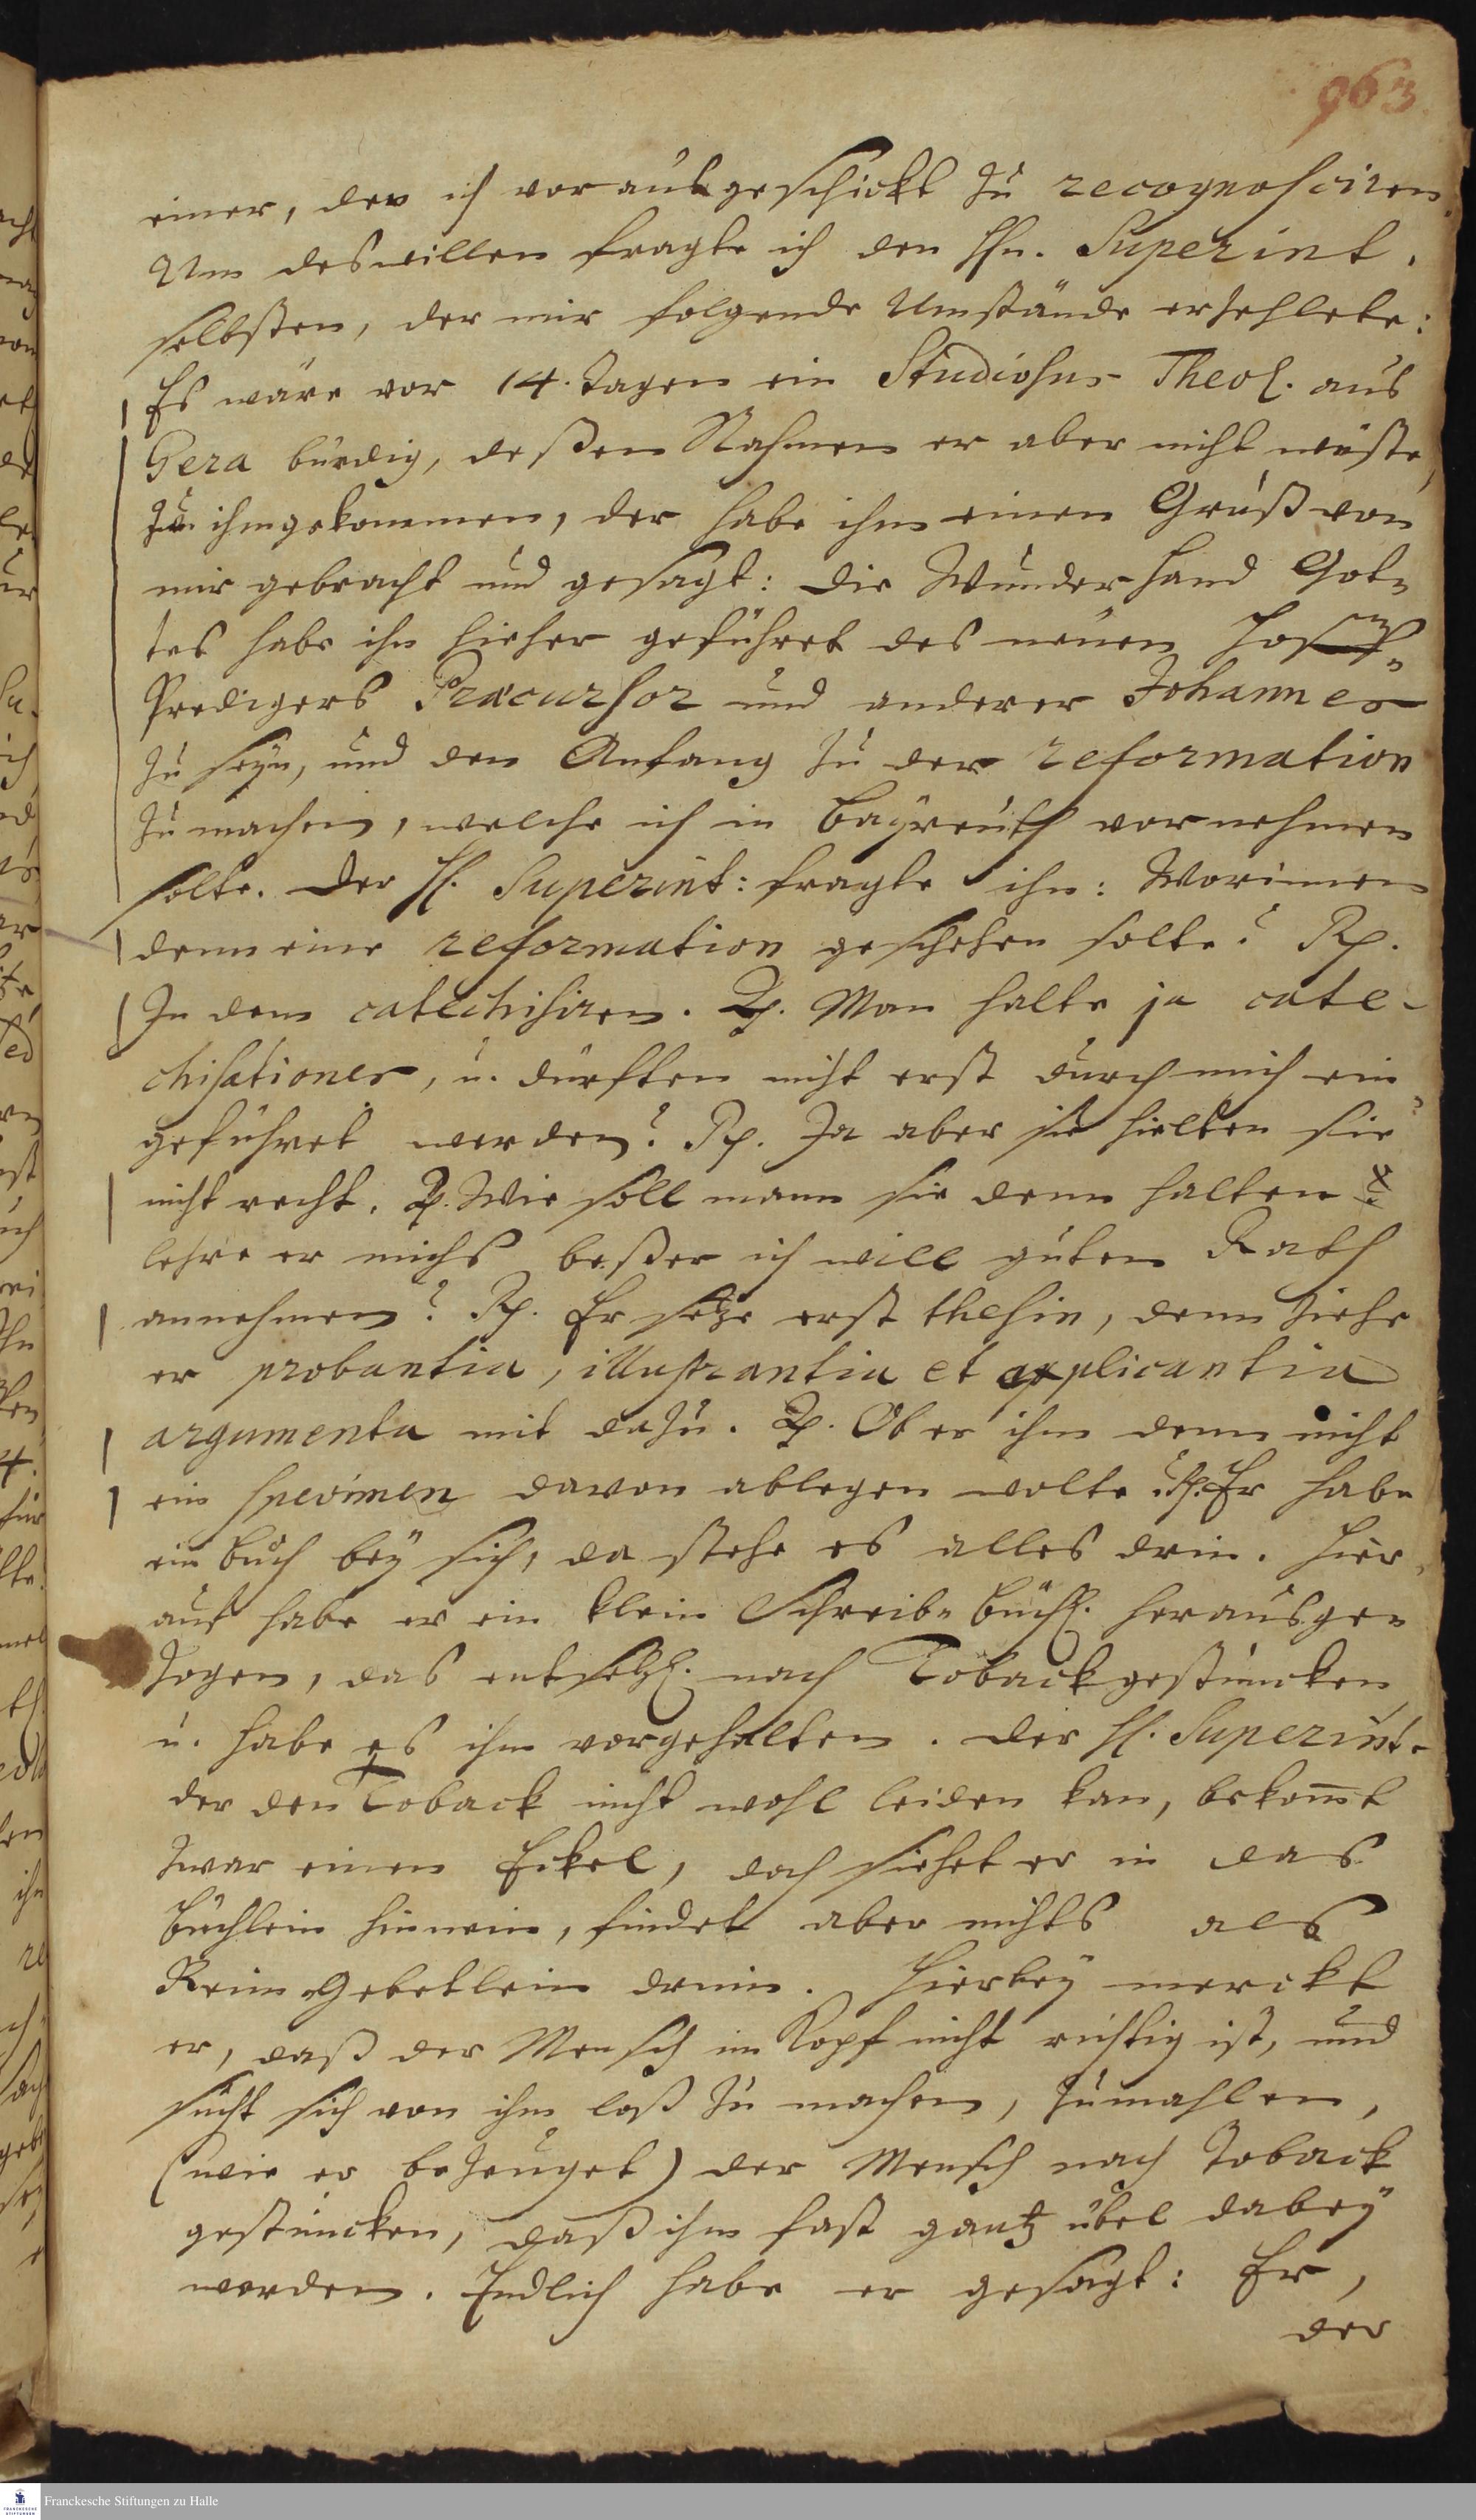 963.
einer, den ich vorausgeschickt zu recognosciren.
Um deswillen fragte ich den Hn. Superint.
selbsten, der mir folgende Umstände erzehlete:
Es wäre vor 14. tagen ein Studiosus Theol. aus
Gera bürdig, deßen Nahmen er aber nicht wüste,
zu ihm gekommen, der habe ihm einen Gruß von
mir gebracht und gesagt: die Wunder Hand Got-
tes habe ihn hieher geführet des neuen Hoff-
Predigers Præcursor und anderer Johannes
zu seyn, und den Anfang zu der reformation
zu machen, welche ich in Bayreuth vornehmen
solte. Der H. Superint: fragte ihn: Worinnen
denn eine reformation geschehen solte? Rp.
In dem catechisiren. Q. Man halte ja cate-
chisationes, u. dürften nicht erst durch mich ein-
geführet werden? Rp. Ja aber sie hielten sie
nicht recht. Q. Wie soll mann sie denn halten?
lehre er michs beßer ich will guten Rath
annehmen? Rp. Er setze erst thesin, denn ziehe
er probantia, illustrantia et applicantia
argumenta mit dazu. Q. Ob er ihm denn nicht
ein specimen davon ablegen wolte? Rp. Er habe
ein Buch bey sich, da stehe es alles drin. Hier-
auf habe er ein klein Schreibe Büchl. herausge-
zogen, das entsetzl. nach Toback gestuncken
u. habe es ihm vorgehalten. der H. Superint.
der den Toback nicht wohl leiden kan, bekomt
zwar einen Eckel, doch siehet er in das
Büchlein hinnein, findet aber nichts als
Reim-Gebetlein drinn. Hierbey merckt
er, daß der Mensch im Kopf nicht richtig ist, und
sucht sich von ihm loß zu machen, zumahlen,
(wie er bezeuget) der Mensch nach Toback
gestuncken, daß ihm fast gantz übel dabey
worden. Endlich habe er gesagt: Er,
der
Franckesche Stiftungen zu Halle